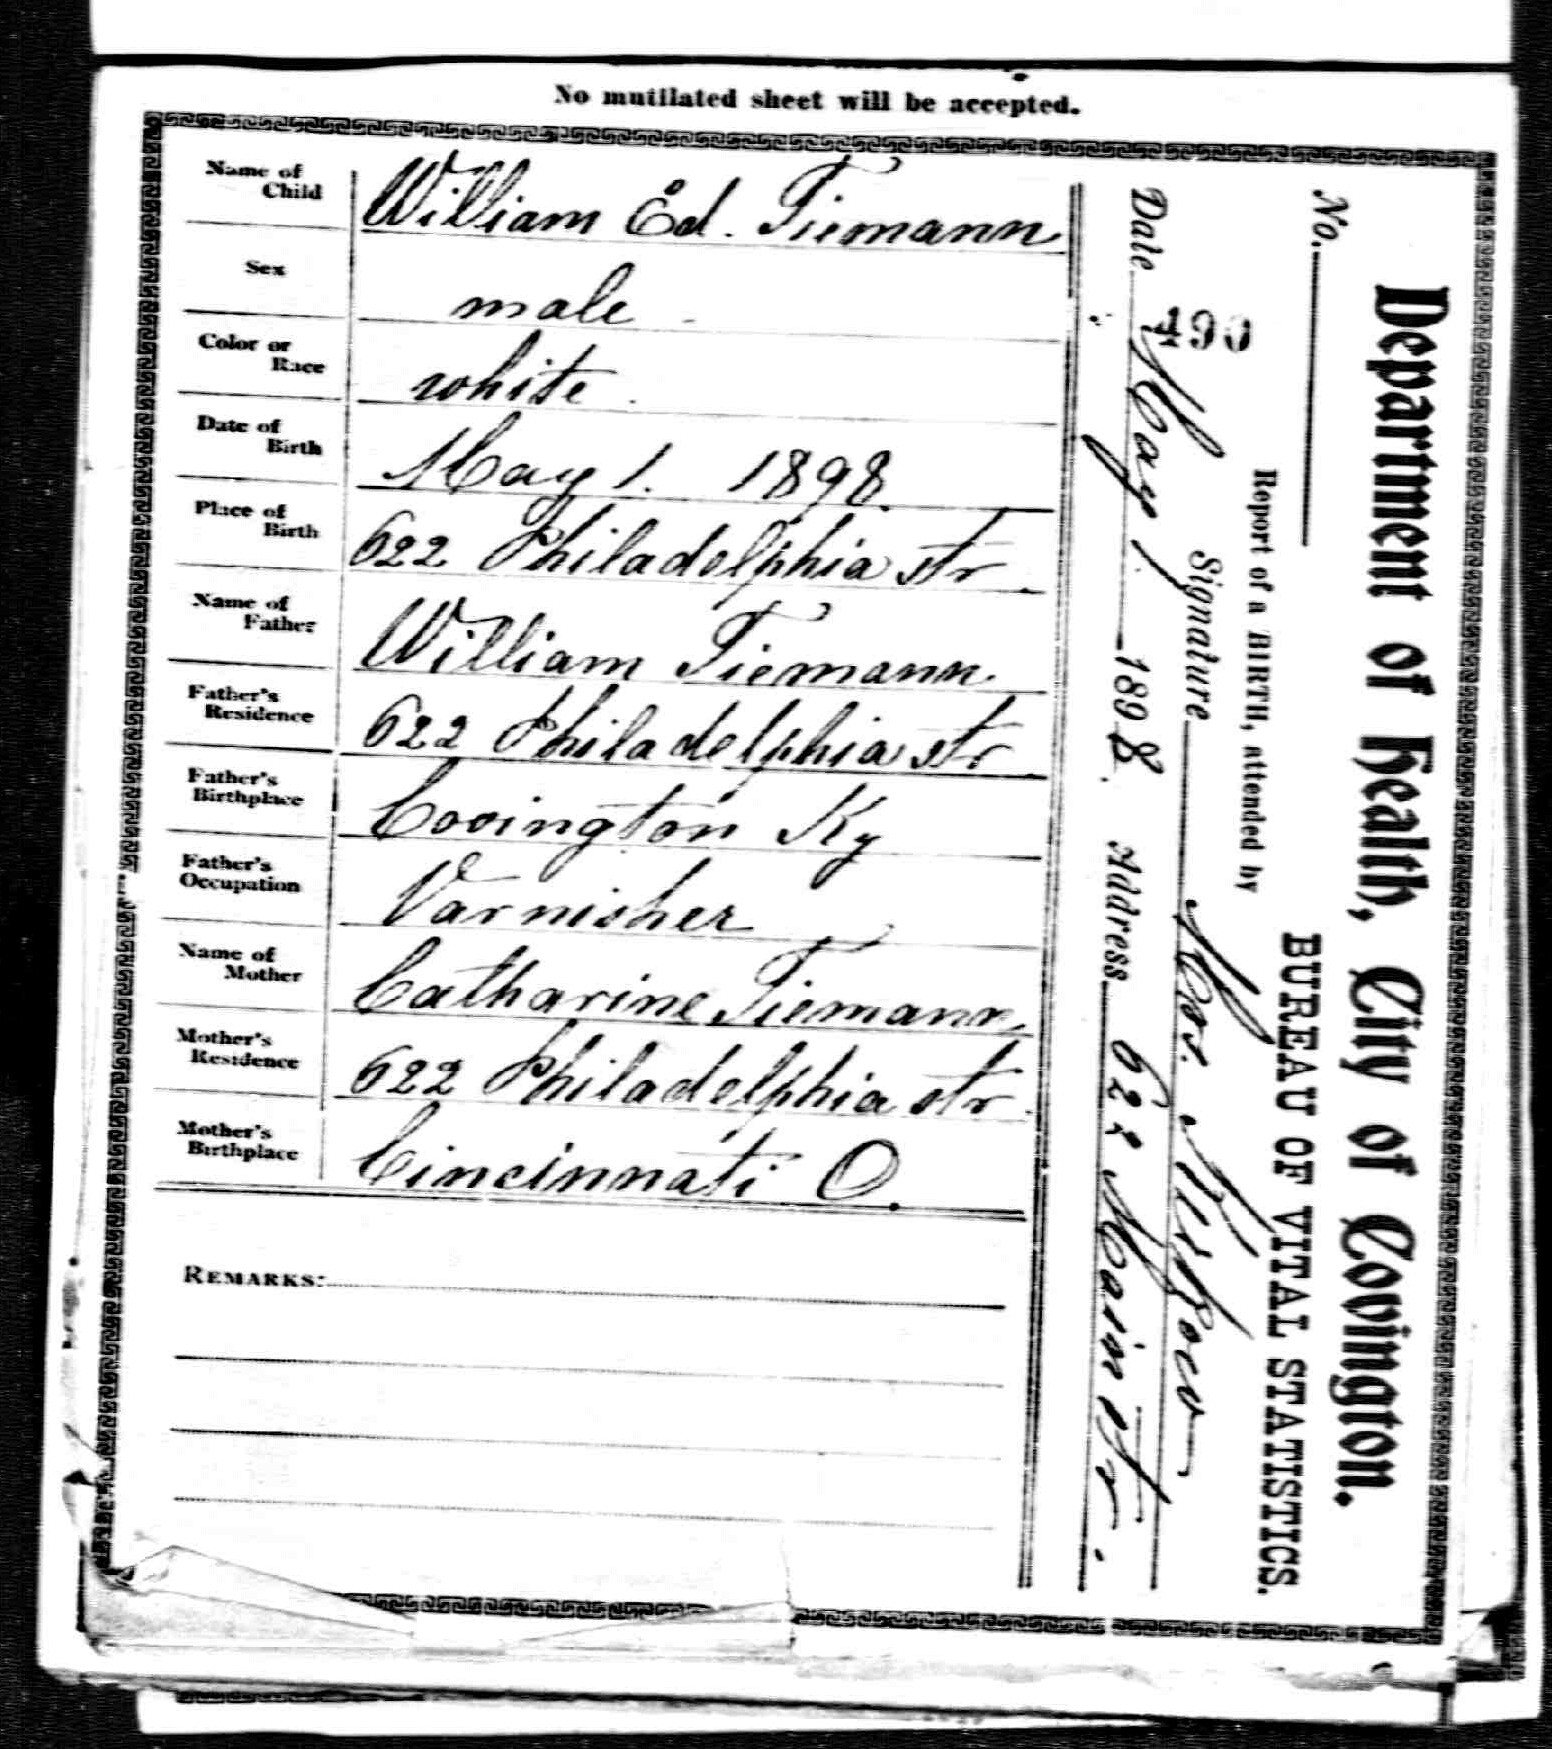 No mutilated sheet will be accepted.
Name of Child William Ed. Tiemann
Sex male
Color or Race white.
Date of Birth May 1. 1898.
Place of Birth 622 Philadelphia Str
Name of Father William Tiemann.
Father's Residence 622 Philadelphia Str
Father's Birthplace Covington Ky
Father's Occupation Varnisher
Name of Mother Catharine Tiemann.
Mother's Residence 622 Philadelphia Str.
Mother's Birthplace Cincinnati O.
REMARKS:
Department of Health, City of Covington.
BUREAU OF VITAL STATISTICS.
No.
Report of a BIRTH, attended by
490
Signature Mrs.
Date May 1. 1898. Address 622 Main Str.